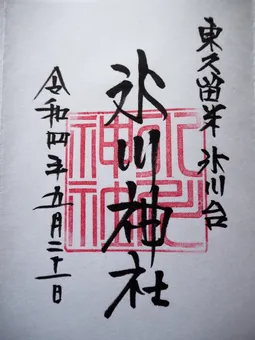 東久留米 氷川台
氷川神社
令和四年九月二十一日
氷川神社